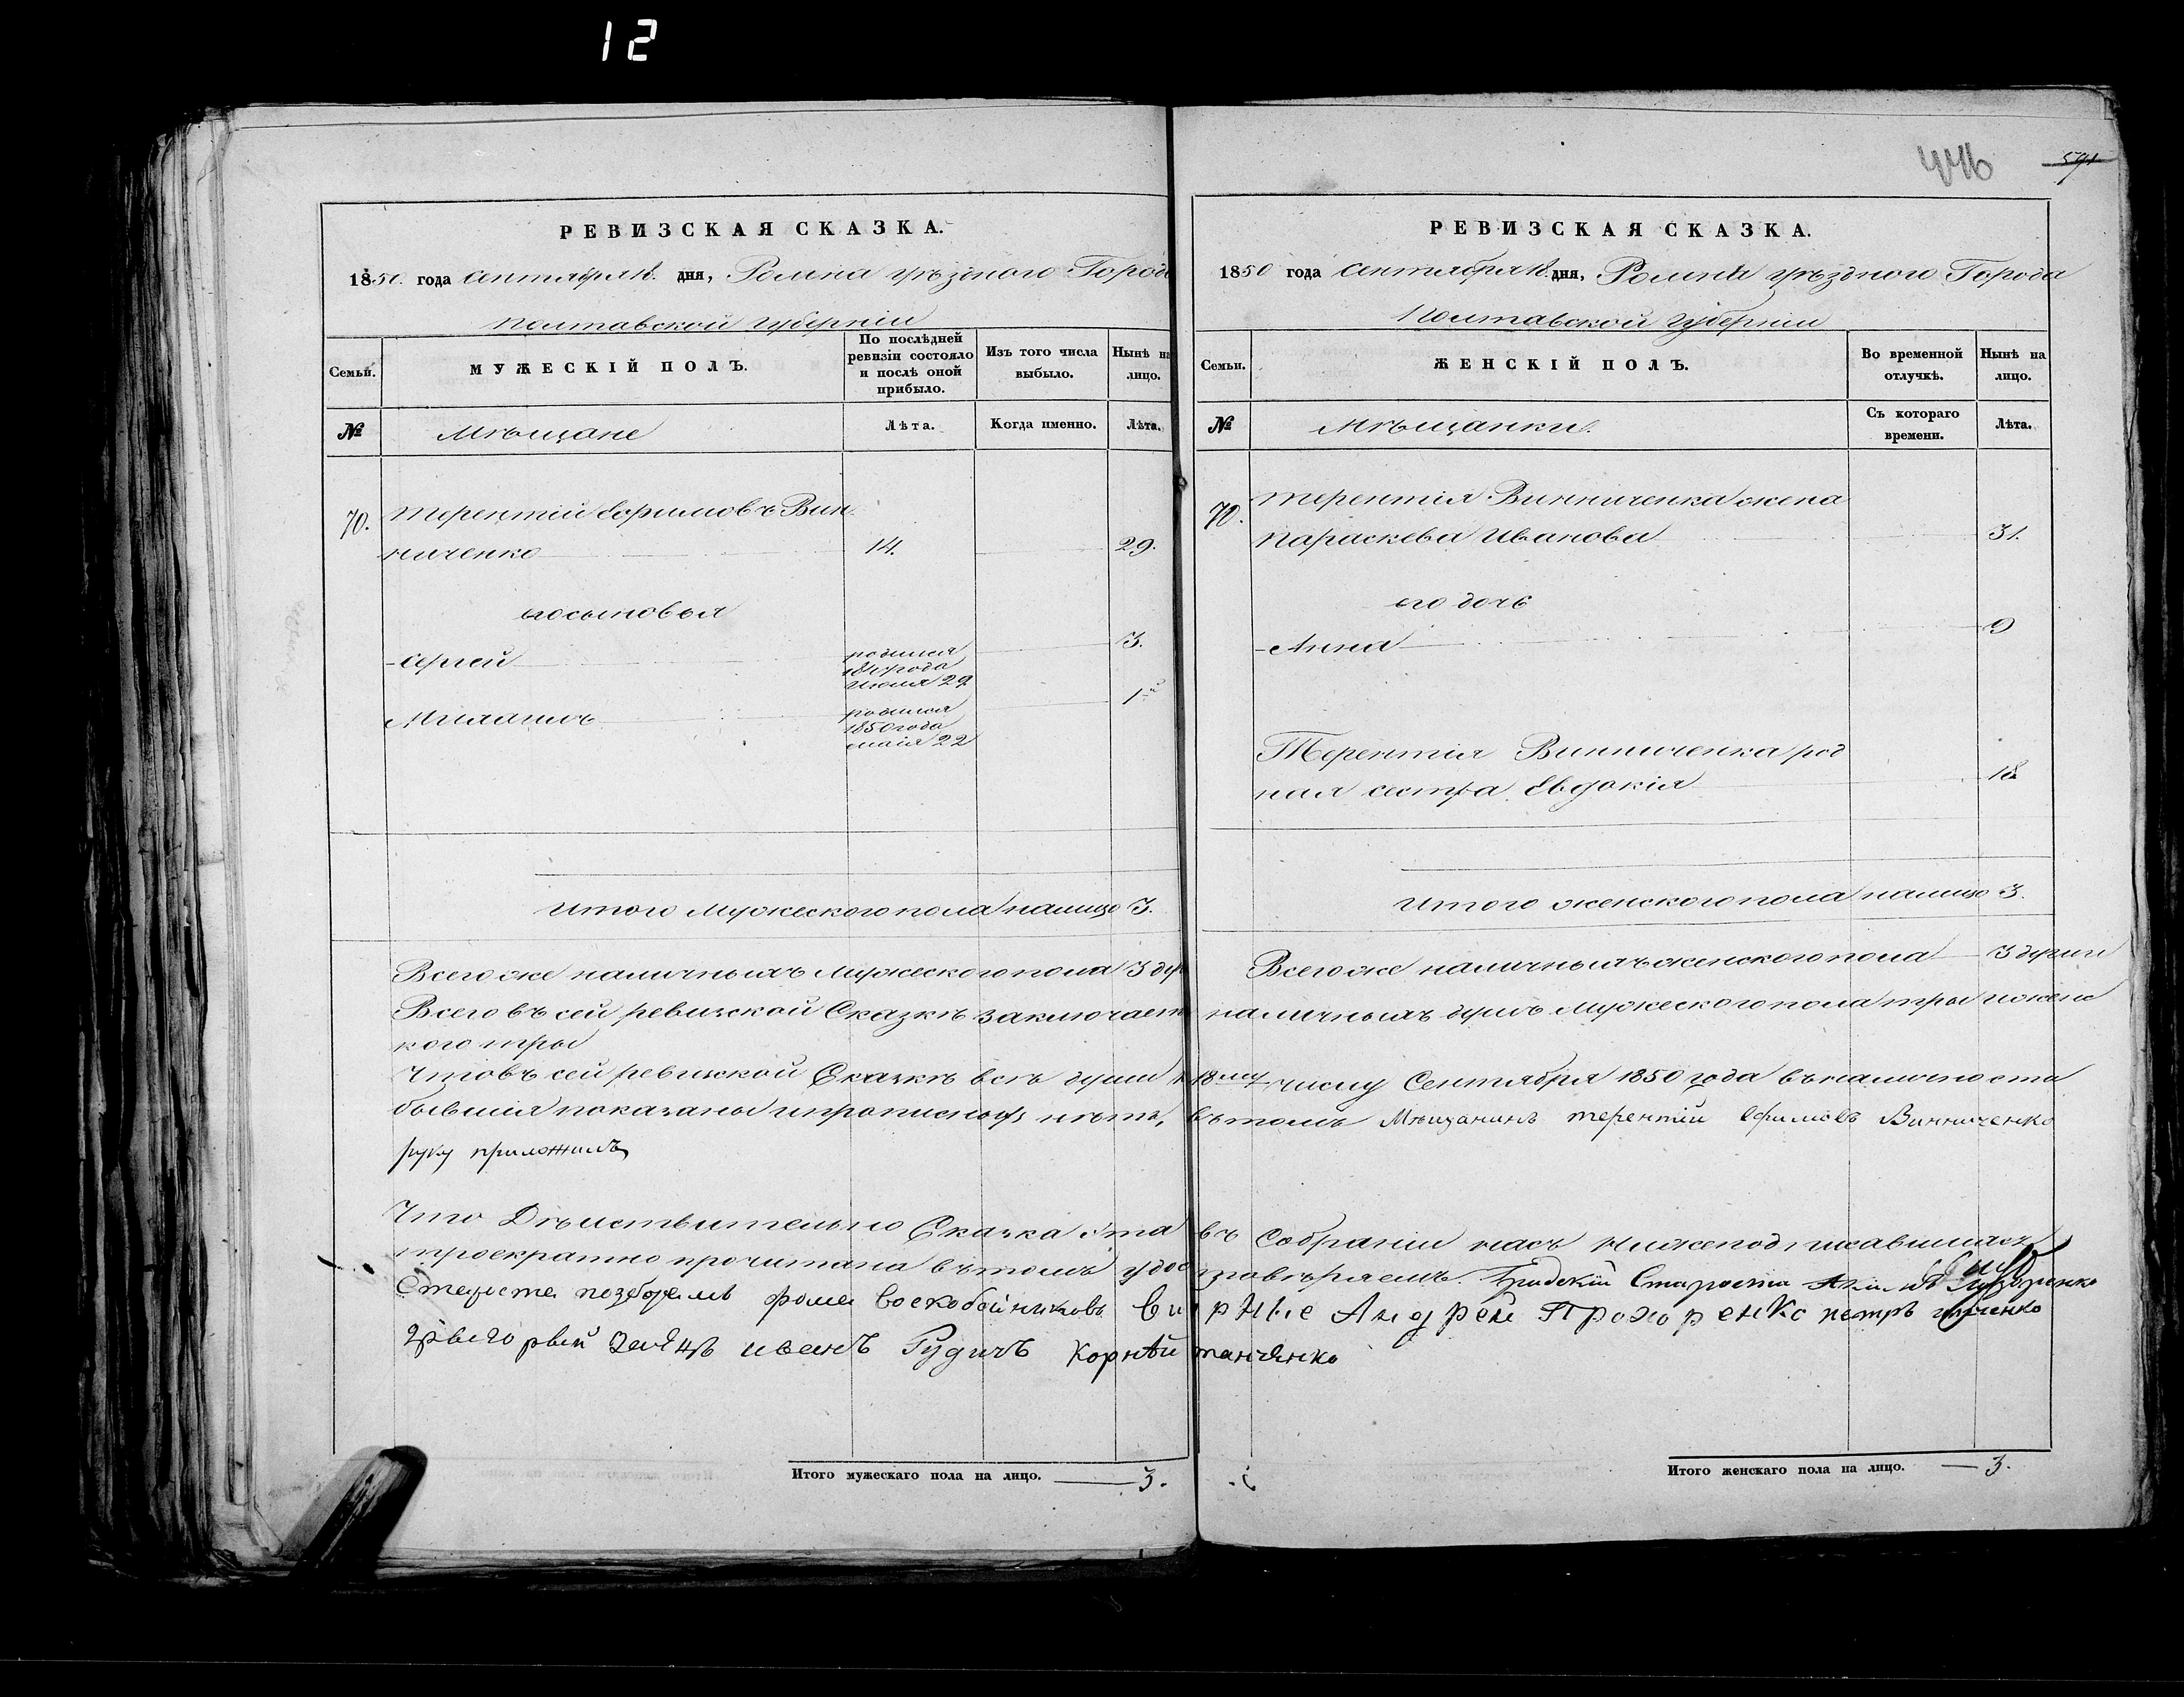 12
446
591
РЕВИЗСКАЯ СКАЗКА.
1850 года Сентября 18 дня, Ромна уѣзднаго Города
Полтавской Губерніи
Семьи.
МУЖЕСКІЙ ПОЛЪ.
По послѣдней ревизіи состояло и послѣ оной прибыло.
Изъ того числа выбыло.
Нынѣ на лицо.
№
Мѣщане
Лѣта.
Когда именно.
Лѣта.
70.
Терентій Ефимовъ Вин
ниченко 14. 29.
его сыновья
Сергей родился 3.
года
Июля 29
Михаилъ родился 1
1850 года
маія 22
Итого Мужескаго пола налицо 3.
Всего же наличныхъ Мужескаго пола 3 ду
Всего въ сей ревизской Сказкѣ заключает
кого три
Что въ сей ревизской Сказкѣ всѣ души к
бывшія показаны и прописныхъ нѣтъ,
руку приложилъ
Что Дѣйствительно Сказка эта
троекратно прочитана въ томъ удос
Фома Воскобойниковъ
иванъ Рудичъ Корнѣй
Итого мужескаго пола на лицо. 3.
РЕВИЗСКАЯ СКАЗКА.
1850 года Сентября 18 дня, Ромна уѣзднаго Города
Полтавской Губерніи
Семьи.
ЖЕНСКІЙ ПОЛЪ.
Во временной отлучкѣ.
Нынѣ на лицо.
№
Мѣщанки.
Съ котораго времени.
Лѣта.
70.
Терентія Винниченка жена
Параскева Иванова 31.
его дочь
Анна 9
Терентія Винниченка род
ная сестра Евдокія 18
Итого женскаго пола налицо 3.
Всего же наличныхъ женскаго пола 3 души
наличныхъ душъ Мужескаго пола три и женс
18му числу Сентября 1850 года въ наличности
въ томъ Мѣщанинъ терентій Ефимовъ Винниченко
въ Собраніи насъ нижеподписавшихся
товѣряемъ. Градскій Староста
Андрей Прохоренко петръ
Итого женскаго пола на лицо. 3.